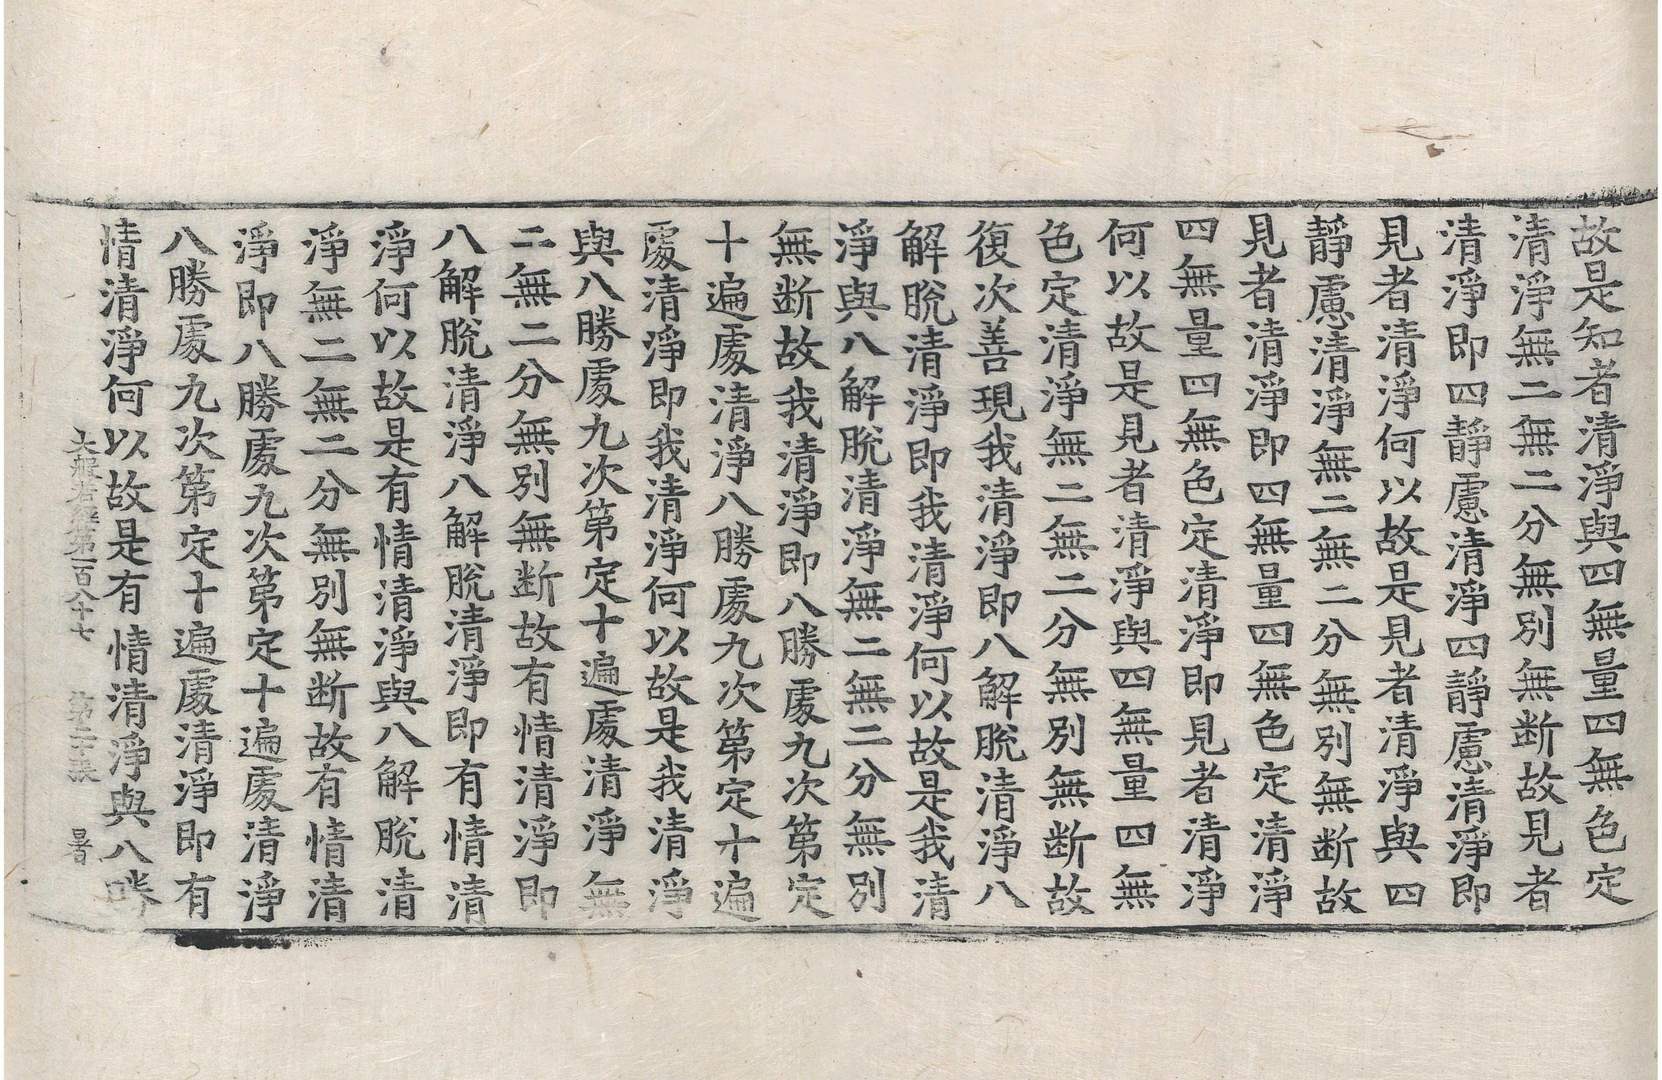 故是知者清淨與四無量四無色定
清淨無二無二分無別無断故見者
清淨即四靜慮清淨四靜慮清淨即
見者清淨何以故是見者清淨與四
靜慮清淨無二無二分無別無断故
見者清淨即四無量四無色定清淨
四無量四無色定清淨即見者清淨
何以故是見者清淨與四無量四無
色定清淨無二無二分無別無断故
復次善現我清淨即八解脫清淨八
解脫清淨即我清淨何以故是我清
淨與八解脫清淨無二無二分無別
無断故我清淨即八勝處九次第定
十遍處清淨八勝處九次第定十遍
處清淨即我清淨何以故是我清淨
與八勝處九次第定十遍處清淨無
二無二分無別無断故有情清淨即
八解脫清淨八解脫清淨即有情清
淨何以故是有情清淨與八解脫清
淨無二無二分無別無断故有情清
淨即八勝處九次第定十遍處清淨
八勝處九次第定十遍處清淨即有
情清淨何以故是有情清淨與八勝
大般若經第一百八十七 第二十張 暑